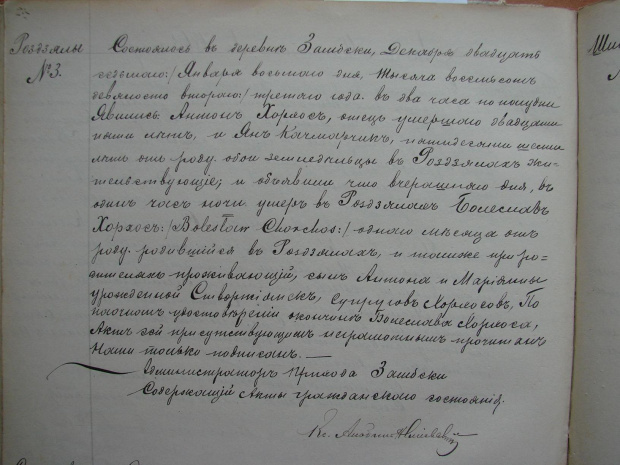 Роздзялы
№ 3.
Состоялось въ деревнѣ Замбски, Декабря двадцать
седьмаго /: Января восьмаго дня, тысяча восемьсотъ
девяносто втораго :/ третьяго года въ два часа по полудни
Явились: Антонъ Хорхосъ, отецъ умершаго двадцати
пяти лѣтъ, и Янъ Качмарчикъ, пятидесяти шести
лѣтъ отъ роду, обои земледѣльцы въ Роздзялахъ жи-
тельствующіе; и объявили что вчерашняго дня, въ
одинъ часъ ночи умеръ въ Роздзялахъ Болеславъ
Хорхосъ /: Bolesław Chorchos :/ одного мѣсяца отъ
роду, родившійся въ Роздзялахъ, и тамже при ро-
дителяхъ проживающій, сынъ Антона и Маріянны
урожденной супруговъ Хорхосовъ, По
наочномъ удостовѣреніи о кончинѣ Болеслава Хорхоса,
Актъ сей присутствующимъ неграмотнымъ прочитанъ
Нами только подписанъ. —
Администраторъ Прихода Замбски
Содержащій Акты гражданскаго состоянія.
Кс.